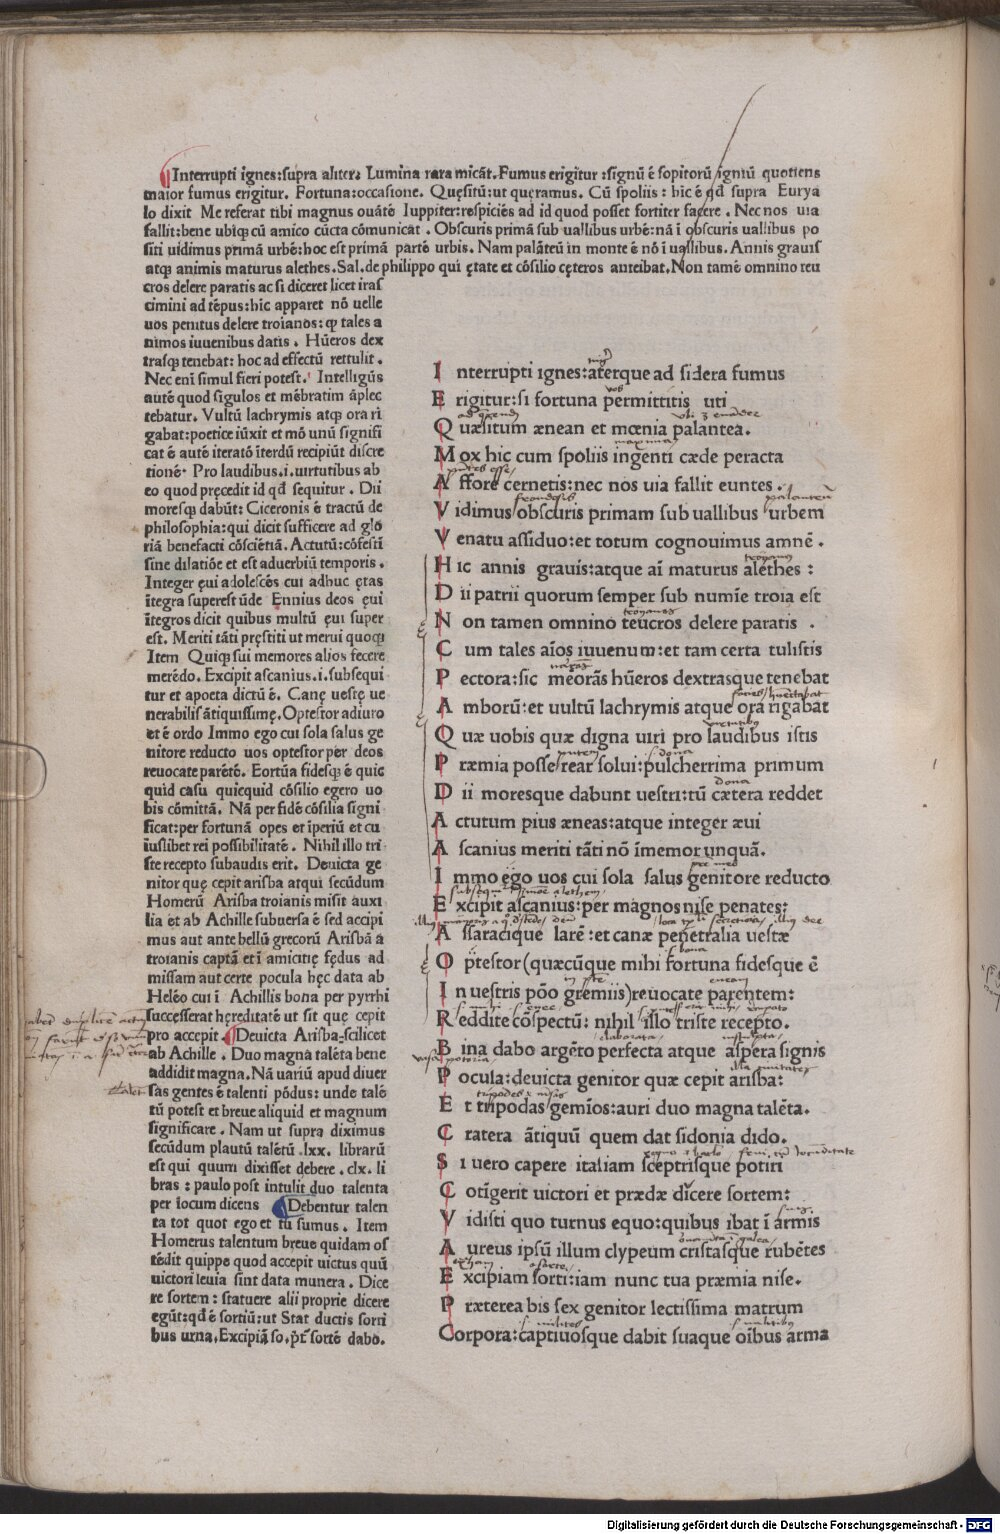 Interrupti ignes:supra aliter: Lumina rara micāt. Fumus erigitur :signū ē sopitorū igniū quotiens
maior fumus erigitur. Fortuna:occasione. Quęsitū:ut queramus. Cū spoliis : hic ē qđ supra Eurya
lo dixit Me referat tibi magnus ouātē Iuppiter:respiciēs ad id quod posset fortiter facere . Nec nos uia
fallit:bene ubiqꝫ cū amico cūcta cōmunicat . Obscuris primā sub uallibus urbē:nā ī obscuris uallibus po
siti uidimus primā urbē:hoc est primā partē urbis. Nam palātēū in monte ē nō ī uallibus. Annis grauis
atqꝫ animis maturus alethes. Sal.de philippo qui ętate et cōsilio cęteros anteibat. Non tamē omnino teu
cros delere paratis ac si diceret licet iras
cimini ad tēpus:hic apparet nō uelle
uos penitus delere troianos: ꝙ tales a
nimos iuuenibus datis . Hūeros dex
trasqꝫ tenebat: hoc ad effectū rettulit .
Nec enī simul fieri potest. Intelligūs
autē quod sigulos et mēbratim āplec
tebatur. Vultū lachrymis atqꝫ ora ri
gabat:poetice iūxit et mō unū signifi
cat ē autē iteratō īterdū recipiūt discre
tionē· Pro laudibus.i.uirtutibus ab
eo quod pręcedit id qđ sequitur . Dii
moresqꝫ dabūt: Ciceronis ē tractū de
philosophia:qui dicit sufficere ad glo
riā benefacti cōsciētiā. Actutū:cōfestī
sine dilatiōe et est aduerbiū temporis .
Integer ęui adolescēs cui adhuc ętas
ītegra superest ūde Ennius deos ęui
ītegros dicit quibus multū ęui super
est. Meriti tāti pręstiti ut merui quoqꝫ
Item Quiqꝫ sui memores alios fecere
merēdo. Excipit ascanius.i.subsequi
tur et apoeta dictū ē. Canę uestę ue
nerabilis ātiquissimę. Optestor adiuro
et ē ordo Immo ego cui sola salus ge
nitore reducto uos optestor per deos
reuocate parētē. Eortūa fidesqꝫ ē quic
quid casu quicquid cōsilio egero uo
bis cōmittā. Nā per fidē cōsilia signi
ficat:per fortunā opes et īperiū et cu
iuslibet rei possibilitatē. Nihil illo tri
ste recepto subaudis erit. Deuicta ge
nitor quę cepit arisba atqui secūdum
Homerū Arisba troianis misit auxi
lia et ab Achille subuersa ē sed accipi
mus aut ante bellū grecorū Arisbā a
troianis captā et ī amicitię fędus ad
missam aut certe pocula hęc data ab
Helēo cui ī Achillis bona per pyrrhi
successerat hęreditatē ut sit quę cepit
pro accepit. Deuicta Arisba:scilicet
ab Achille . Duo magna talēta bene
addidit magna. Nā uariū apud diuer
sas gentes ē talenti pōdus: unde talē
tū potest et breue aliquid et magnum
significare . Nam ut supra diximus
secūdum plautū talētū .lxx. librarū
est qui quum dixisset debere . clx. li
bras : paulo post intulit duo talenta
per locum dicens Debentur talen
ta tot quot ego et tu sumus . Item
Homerus talentum breue quidam os
tēdit quippe quod accepit uictus quū
uictori leuia sīnt data munera . Dice
re sortem : statuere alii proprie dicere
egūt:qđ ē sortiū:ut Stat ductis sorti
bus urna. Excipiā so.p̄t sortē dabo.
I nterrupti ignes:aterque ad sidera fumus
E rigitur:si fortuna permittitis uti
Q uæsitum ænean et mœnia palantea.
M ox hic cum spoliis ingenti cæde peracta
A ffore cernetis:nec nos uia fallit euntes .
V idimus obscuris primam sub uallibus urbem
V enatu assiduo:et totum cognouimus amnē .
H ic annis grauis:atque aī maturus alethes :
D ii patrii quorum semper sub numīe troia est
N on tamen omnino teucros delere paratis .
C um tales aīos iuuenum:et tam certa tulistis
P ectora:sic meorās hūeros dextrasque tenebat
A mborū:et uultū lachrymis atque ora rigabat
Q uæ uobis quæ digna uiri pro laudibus istis
P ræmia posse rear solui:pulcherrima primum
D ii moresque dabunt uestri:tū cætera reddet
A ctutum pius æneas:atque integer æui
A scanius meriti tāti nō īmemor unquā.
I mmo ego uos cui sola salus genitore reducto
E xcipit ascanius:per magnos nise penates:
A ssaracique larē :et canæ penetralia uestæ
O ptestor(quæcūque mihi fortuna fidesque ē
I n uestris pōo gremiis)reuocate parentem:
R eddite cōspectū: nihil illo triste recepto.
B ina dabo argēto perfecta atque aspera signis
P ocula:deuicta genitor quæ cepit arisba:
E t tripodas gemīos:auri duo magna talēta.
C ratera ātiquū quem dat sidonia dido.
S i uero capere italiam sceptrisque potiri
C otīgerit uictori et prædæ dicere sortem:
V idisti quo turnus equo:quibus ibat ī armis
A ureus ipsū illum clypeum cristasque rubētes
E xcipiam sorti:iam nunc tua præmia nise.
P ræterea bis sex genitor lectissima matrum
Corpora:captiuosque dabit suaque oībus arma
Digitalisierung gefördert durch die Deutsche Forschungsgemeinschaft - DFG